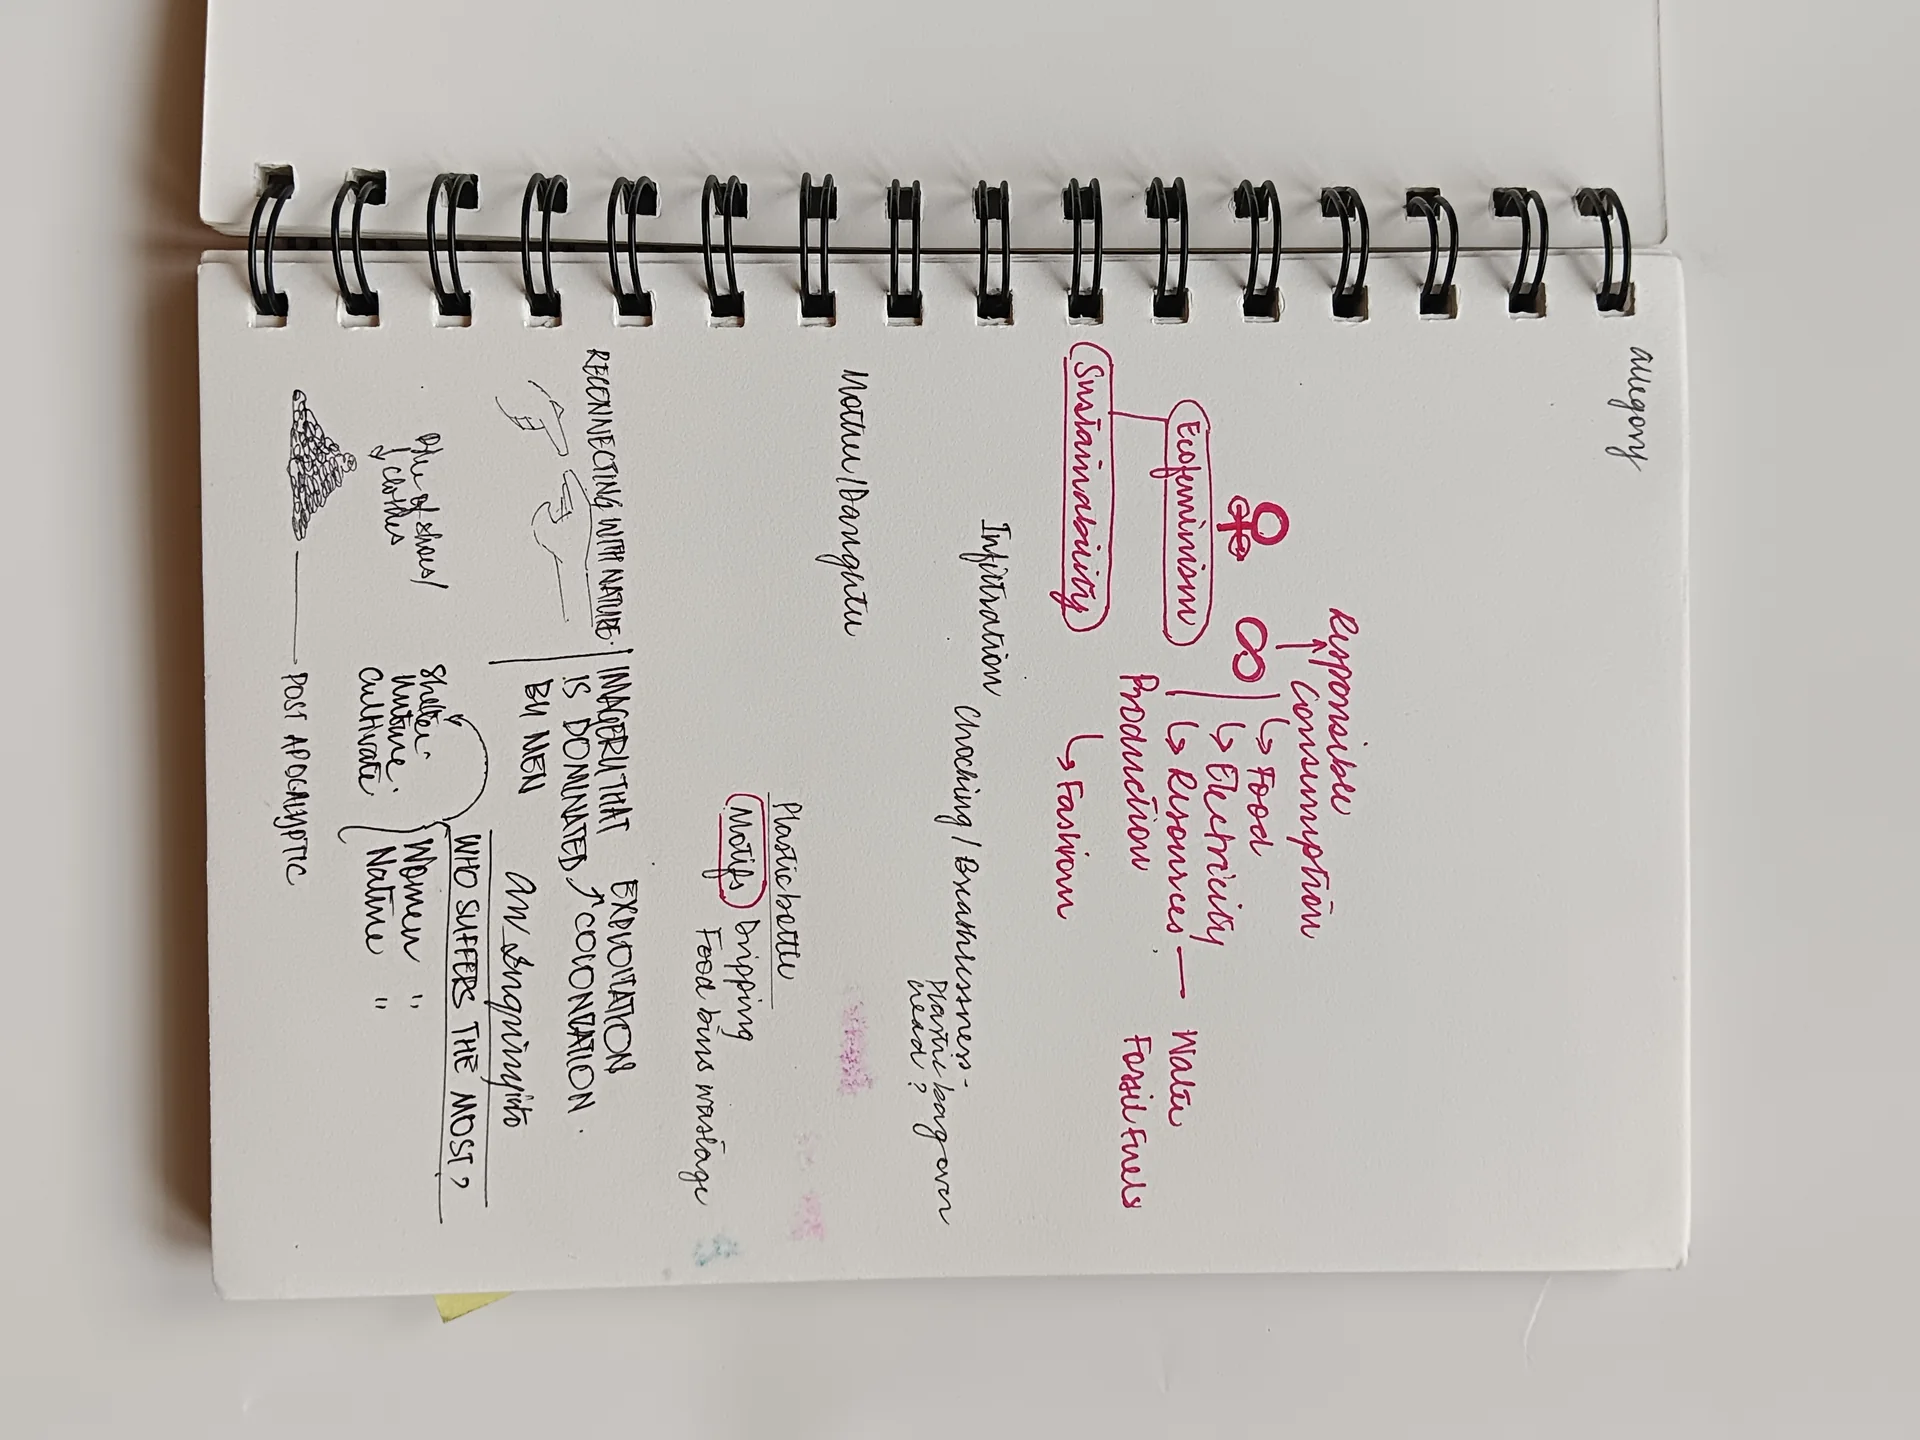 allegory
Responsible
Consumption
∞
Food
Ecofeminism
Electricity
Resources — Water
Sustainability
Production
Fossil Fuels
Fashion
Infiltration
Choching / Breathlessness-
Plastic bag over
head ?
Mother / Daughter
Plastic bottle
Motifs Dripping
Food bins wastage
RECONNECTING WITH NATURE.
IMAGERY THAT
IS DOMINATED
BY MEN
EXPLOITATION
COLONIZATION.
an Inquiry into
WHO SUFFERS THE MOST?
Pile of shoes/
clothes
Shelter.
nurture.
cultivate.
Women "
Nature "
POST APOCALYPTIC